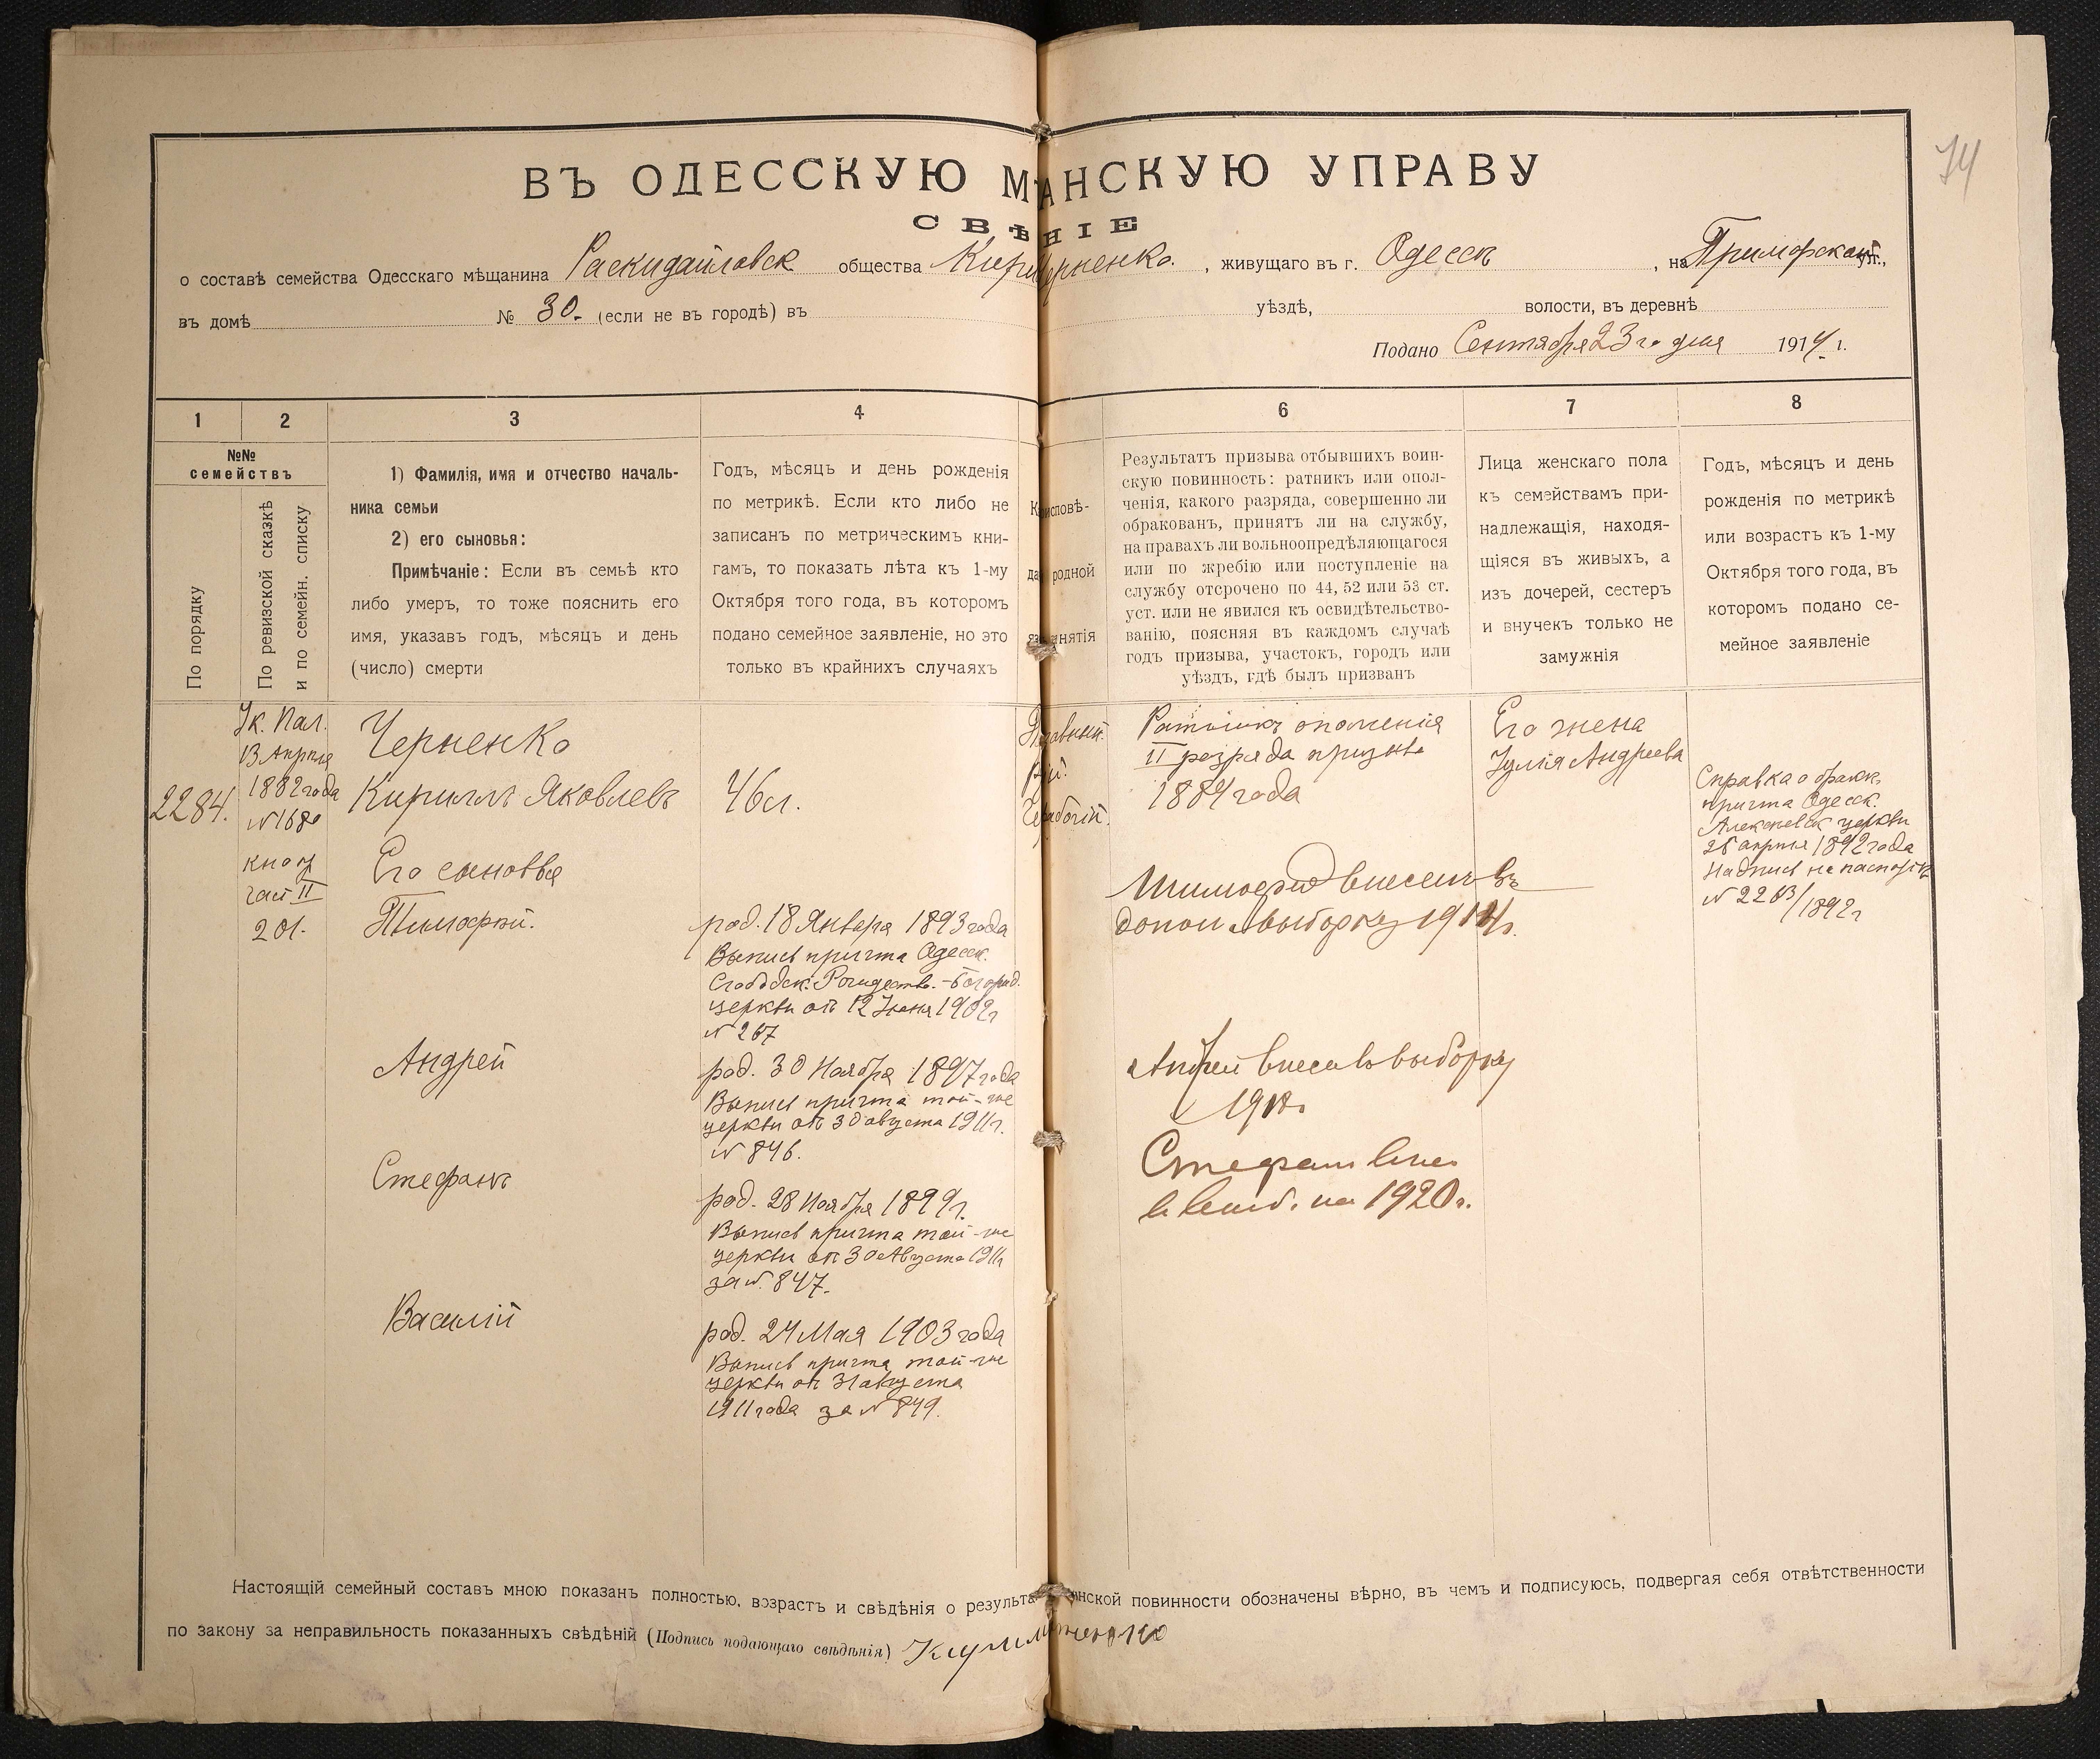 74
ВЪ ОДЕССКУЮ М АНСКУЮ УПРАВУ
СВѢ НІЕ
о составѣ семейства Одесскаго мѣщанина Раскидайловск. общества Кири Черненко. , живущаго въ г. Одессѣ , на Приморской ул.,
въ домѣ № 30. (если не въ городѣ) въ уѣздѣ, волости, въ деревнѣ
Подано Сентября 23 го дня 1914 г.
1 2 3 4 6 7 8
№№
семействъ
По порядку
По ревизской сказкѣ
и по семейн. списку
1) Фамилія, имя и отчество началь-
ника семьи
2) его сыновья:
Примѣчаніе: Если въ семьѣ кто
либо умеръ, то тоже пояснить его
имя, указавъ годъ, мѣсяцъ и день
(число) смерти
Годъ, мѣсяцъ и день рожденія
по метрикѣ. Если кто либо не
записанъ по метрическимъ кни-
гамъ, то показать лѣта къ 1-му
Октября того года, въ которомъ
подано семейное заявленіе, но это
только въ крайнихъ случаяхъ
исповѣ-
родной
нятія
Результатъ призыва отбывшихъ воин-
скую повинность: ратникъ или опол-
ченія, какого разряда, совершенно ли
обракованъ, принятъ ли на службу,
на правахъ ли вольноопредѣляющагося
или по жребію или поступленіе на
службу отсрочено по 44, 52 или 53 ст.
уст. или не явился къ освидѣтельство-
ванію, поясняя въ каждомъ случаѣ
годъ призыва, участокъ, городъ или
уѣздъ, гдѣ былъ призванъ
Лица женскаго пола
къ семействамъ при-
надлежащія, находя-
щіяся въ живыхъ, а
изъ дочерей, сестеръ
и внучекъ только не
замужнія
Годъ, мѣсяцъ и день
рожденія по метрикѣ
или возрастъ къ 1-му
Октября того года, въ
которомъ подано се-
мейное заявленіе
2284.
Ук. Пал.
13 Апрѣля
1882 года
№ 1680
част II
201.
Черненко
Кириллъ Яковлевъ
46 л.
Его сыновья
Тимофей.
род. 18 Января 1893 года
Выпись причта Одесск.
Слободск. Рождество.-Богород.
церкви отъ 12 Іюня 1902 г
№ 267
Андрей
род. 30 Ноября 1897 года
Выпись причта той-же
церкви отъ 30 августа 1911 г.
№ 846.
Стефанъ
род. 28 Ноября 1899 г.
Выпись причта той-же
церкви отъ 30 Августа 1911 г
за №. 847.
Василій
род. 24 Мая 1903 года
Выпись причта той-же
церкви отъ 31 августа
1911 года за № 849.
Ратникъ ополченія
II разряда призыва
1889 года
Тимофей внесенъ въ
допол выборку 1914 г.
Андрей внесъ въ выборку
Стефанъ внес
в выб. на 1920 г.
Его жена
Іулія Андреева
Справка о бракѣ
причта Одесск.
Алексѣевск церкви
26 апрѣля 1892 года
Надпись на паспортѣ
№ 2263/1892 г
Настоящій семейный составъ мною показанъ полностью, возрастъ и свѣдѣнія о результа инской повинности обозначены вѣрно, въ чемъ и подписуюсь, подвергая себя отвѣтственности
по закону за неправильность показанныхъ свѣдѣній (Подпись подающаго свѣдѣнія)